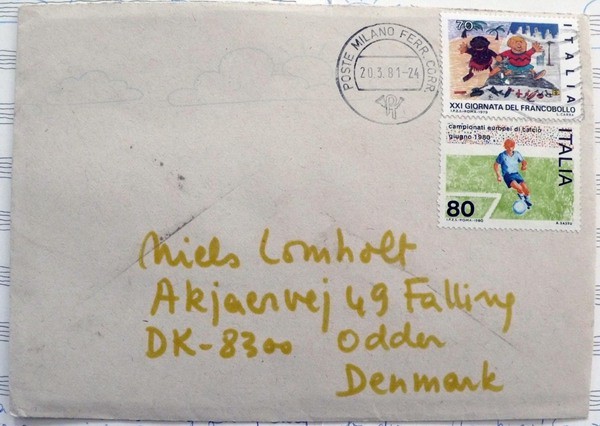 POSTE MILANO FERR. CORR.
20.3.81-24
70
ITALIA
XXI GIORNATA DEL FRANCOBOLLO
I.P.Z.S.-ROMA-1979
campionati europei di calcio
giugno 1980
ITALIA
80
I.P.Z.S.-ROMA-1980
Niels Lomholt
Akjaervej 49 Falling
DK-8300 Odder
Denmark